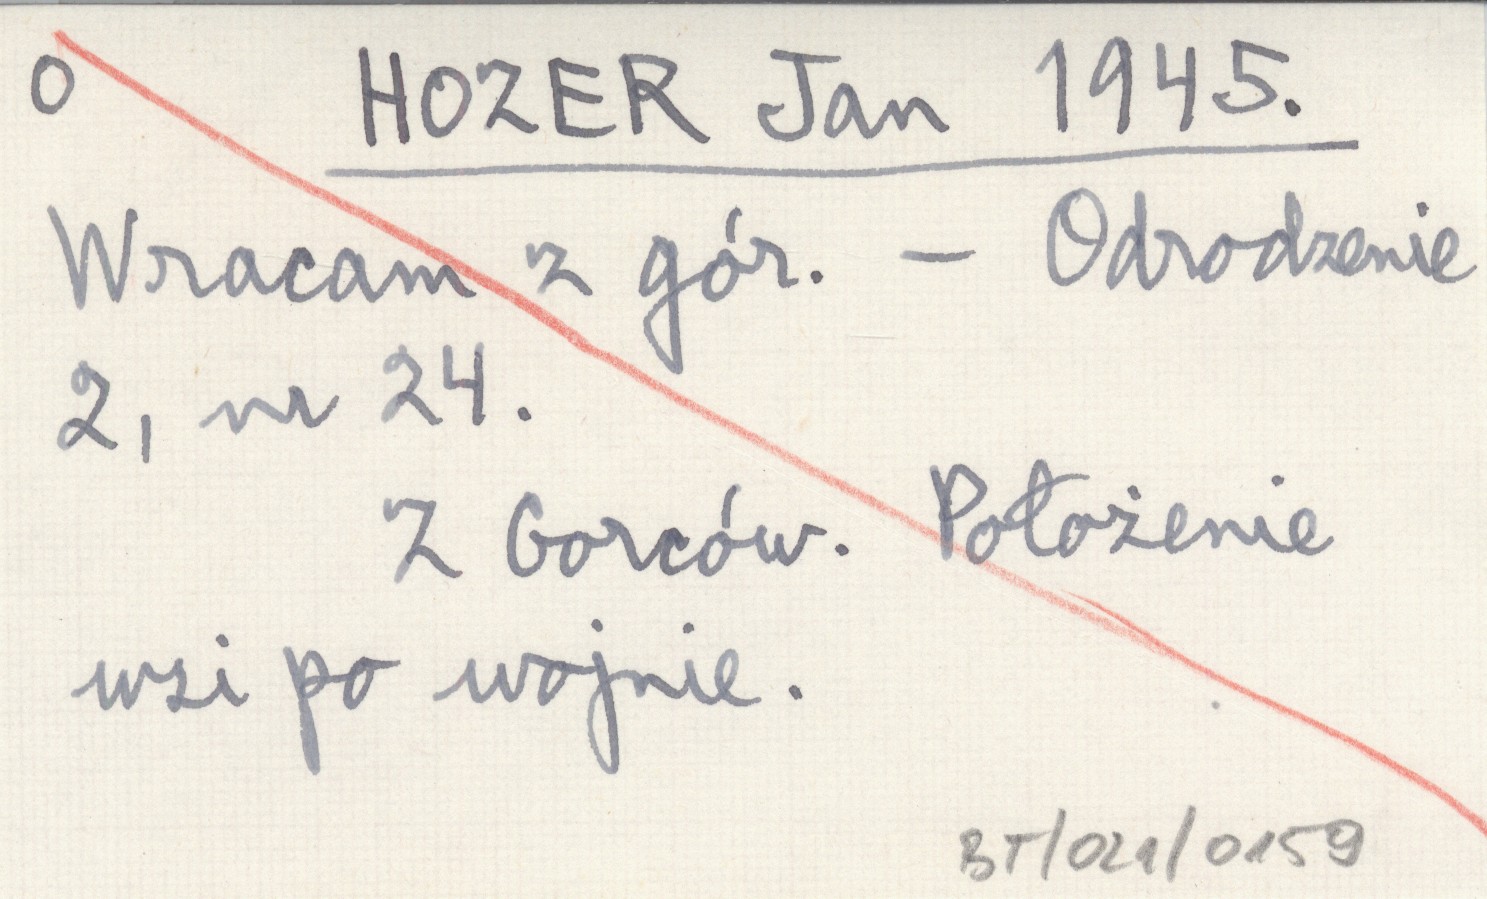 O HOZER Jan 1945.
Wracam z gór. – Odrodzenie
2, nr 24.
Z Gorców. Położenie
wsi po wojnie.
BT/021/0159